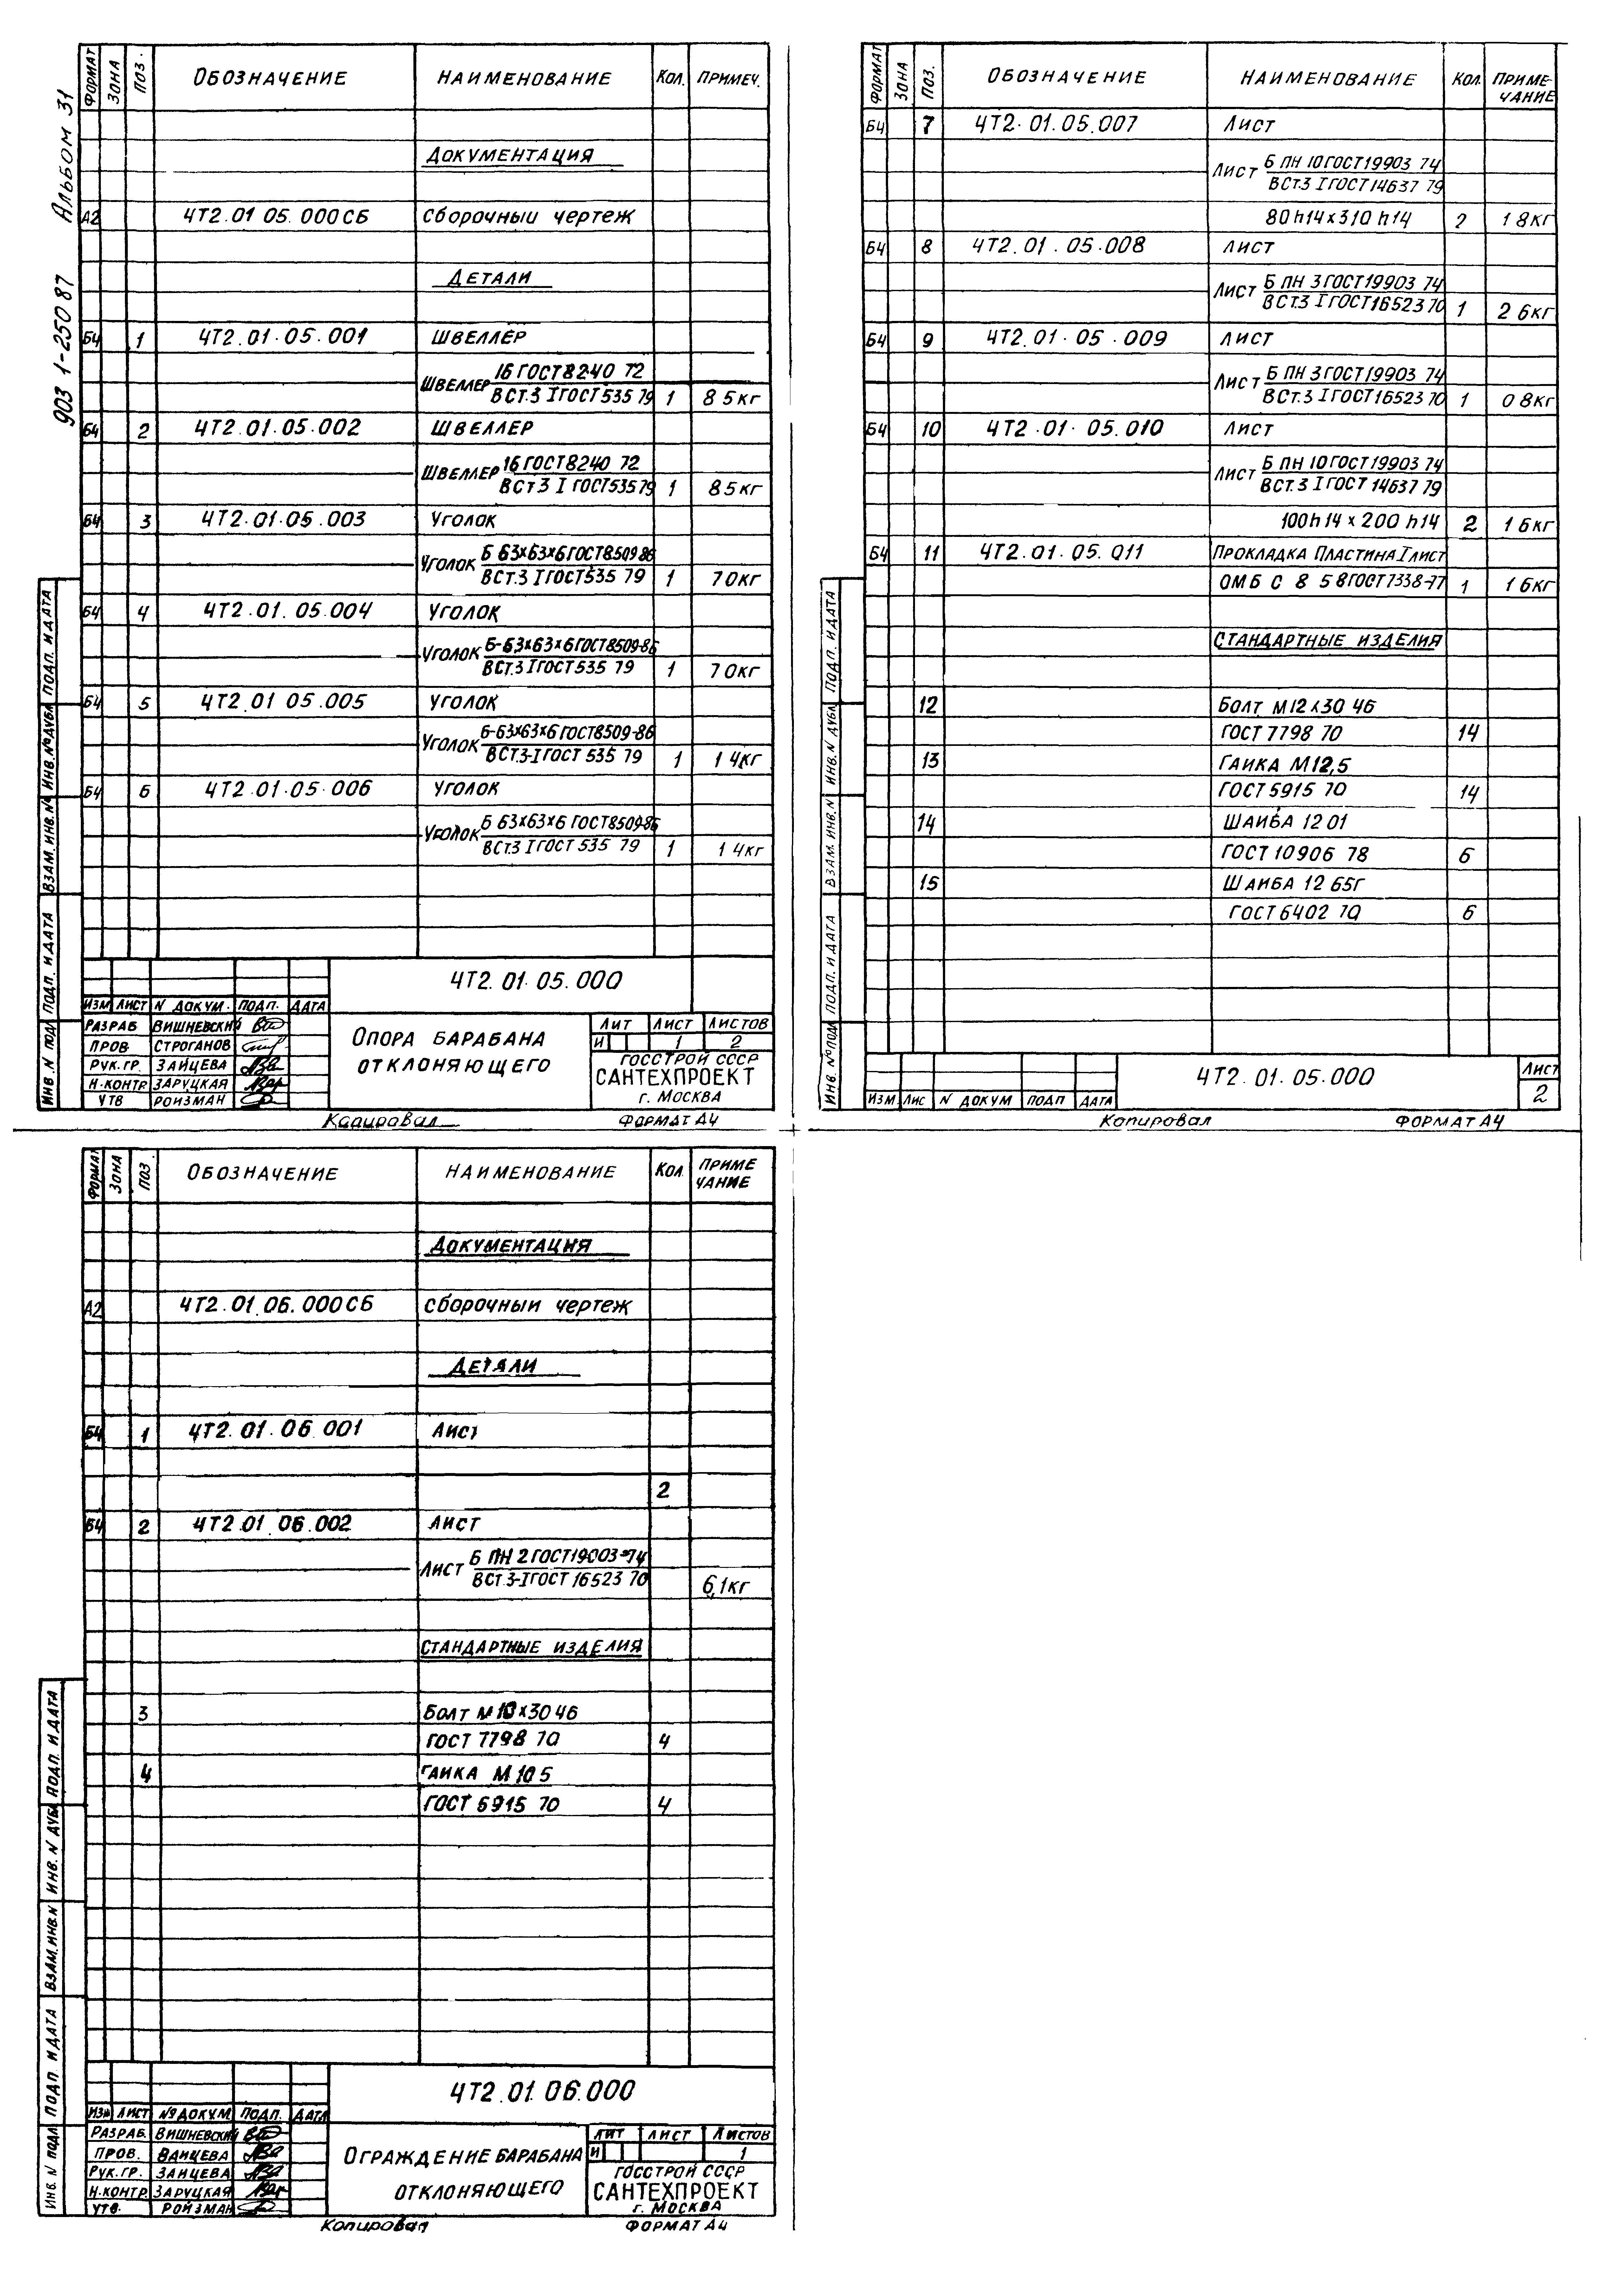 903 1-250 87 Альбом 31
ФОРМАТ ЗОНА ПОЗ. ОБОЗНАЧЕНИЕ НАИМЕНОВАНИЕ КОЛ. ПРИМЕЧ.
ДОКУМЕНТАЦИЯ
А2 4Т2.01 05.000СБ Сборочный чертеж
ДЕТАЛИ
Б4 1 4Т2.01.05.001 ШВЕЛЛЕР
16 ГОСТ 8240 72
ШВЕЛЛЕР
ВСт.3 I ГОСТ 535 79 1 8 5кг
Б4 2 4Т2.01.05.002 ШВЕЛЛЕР
16 ГОСТ 8240 72
ШВЕЛЛЕР
ВСт3 I ГОСТ 535 79 1 8 5кг
Б4 3 4Т2.01.05.003 УГОЛОК
Б 63х63х6 ГОСТ 8509-86
УГОЛОК
ВСт.3 I ГОСТ 535 79 1 7 0кг
Б4 4 4Т2.01.05.004 УГОЛОК
Б-63х63х6 ГОСТ 8509-86
УГОЛОК
ВСт.3 I ГОСТ 535 79 1 7 0кг
Б4 5 4Т2.01 05.005 УГОЛОК
Б-63х63х6 ГОСТ 8509-86
УГОЛОК
ВСт.3-I ГОСТ 535 79 1 1 4кг
Б4 6 4Т2.01.05.006 УГОЛОК
Б 63х63х6 ГОСТ 8509-86
УГОЛОК
ВСт.3 I ГОСТ 535 79 1 1 4кг
ИНВ. N ПОДЛ ПОДП. И ДАТА ВЗАМ. ИНВ. № ИНВ. № ДУБЛ ПОДП. И ДАТА
4Т2.01.05.000
ИЗМ ЛИСТ N ДОКУМ. ПОДП. ДАТА
РАЗРАБ ВИШНЕВСКИЙ
ПРОВ. СТРОГАНОВ
РУК.ГР. ЗАЙЦЕВА
Н.КОНТР. ЗАРУЦКАЯ
УТВ РОЙЗМАН
ОПОРА БАРАБАНА
ОТКЛОНЯЮЩЕГО
ЛИТ ЛИСТ ЛИСТОВ
И 1 2
ГОССТРОЙ СССР
САНТЕХПРОЕКТ
г. МОСКВА
Копировал ФОРМАТ А4
ФОРМАТ ЗОНА ПОЗ. ОБОЗНАЧЕНИЕ НАИМЕНОВАНИЕ КОЛ. ПРИМЕ-
ЧАНИЕ
Б4 7 4Т2.01.05.007 ЛИСТ
Б ПН 10 ГОСТ 19903 74
ЛИСТ
ВСт.3 I ГОСТ 14637 79
80h14х310h14 2 1 8кг
Б4 8 4Т2.01.05.008 ЛИСТ
Б ПН 3 ГОСТ 19903 74
ЛИСТ
ВСт.3 I ГОСТ 16523 70 1 2 6кг
Б4 9 4Т2.01.05.009 ЛИСТ
Б ПН 3 ГОСТ 19903 74
ЛИСТ
ВСт.3 I ГОСТ 16523 70 1 0 8кг
Б4 10 4Т2.01.05.010 ЛИСТ
Б ПН 10 ГОСТ 19903 74
ЛИСТ
ВСт.3 I ГОСТ 14637 79
100h14 х 200 h14 2 1 6кг
Б4 11 4Т2.01.05.011 ПРОКЛАДКА ПЛАСТИНА I ЛИСТ
ОМБ С 8 5 8 ГОСТ 7338-77 1 1 6кг
СТАНДАРТНЫЕ ИЗДЕЛИЯ
12 БОЛТ М12х30 46
ГОСТ 7798 70 14
13 ГАЙКА М12,5
ГОСТ 5915 70 14
14 ШАЙБА 12 01
ГОСТ 10906 78 6
15 ШАЙБА 12 65Г
ГОСТ 6402 70 6
ИНВ. № ПОДЛ ПОДП. И ДАТА ВЗАМ. ИНВ. N ИНВ. N ДУБЛ ПОДП. И ДАТА
ИЗМ. ЛИС N ДОКУМ ПОДП ДАТА
4Т2.01.05.000
ЛИСТ
2
Копировал ФОРМАТ А4
ФОРМАТ ЗОНА ПОЗ. ОБОЗНАЧЕНИЕ НАИМЕНОВАНИЕ КОЛ. ПРИМЕ
ЧАНИЕ
ДОКУМЕНТАЦИЯ
А2 4Т2.01.06.000СБ Сборочный чертеж
ДЕТАЛИ
Б4 1 4Т2.01.06.001 ЛИСТ
2
Б4 2 4Т2.01 06.002 ЛИСТ
Б ПН 2 ГОСТ 19003-74
ЛИСТ
ВСт.3-I ГОСТ 16523 70 6,1кг
СТАНДАРТНЫЕ ИЗДЕЛИЯ
3 БОЛТ М10х30 46
ГОСТ 7798 70 4
4 ГАЙКА М 10 5
ГОСТ 5915 70 4
ИНВ. N ПОДЛ ПОДП И ДАТА ВЗАМ.ИНВ.N ИНВ. N ДУБЛ ПОДП. И ДАТА
4Т2.01.06.000
ИЗМ ЛИСТ № ДОКУМ ПОДП. ДАТА
РАЗРАБ. ВИШНЕВСКИЙ
ПРОВ. ЗАЙЦЕВА
РУК.ГР. ЗАЙЦЕВА
Н.КОНТР. ЗАРУЦКАЯ
УТВ. РОЙЗМАН
ОГРАЖДЕНИЕ БАРАБАНА
ОТКЛОНЯЮЩЕГО
ЛИТ ЛИСТ ЛИСТОВ
И 1
ГОССТРОЙ СССР
САНТЕХПРОЕКТ
г. МОСКВА
Копировал ФОРМАТ А4